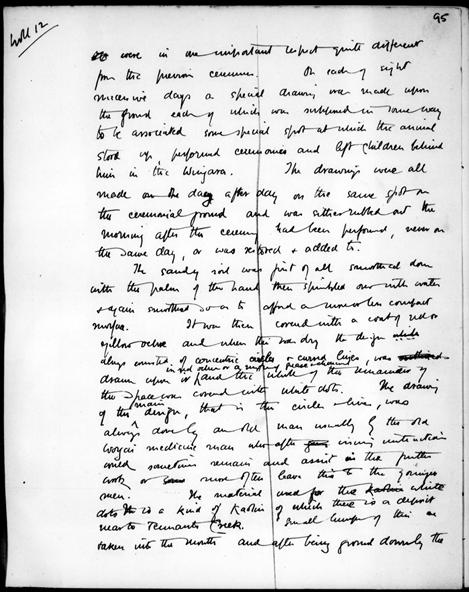 95
Woll 12
were in one important respect quite different
from the previous ceremonies. On each of eight
successive days a special drawing was made upon
the ground each of which was supposed in some way
to be associated some special spot at which the animal
stood up, performed ceremonies and left children behind
him in the Wingara. The drawings were all
made day after day on the same spot on
the ceremonial ground and was either rubbed out the
morning after the ceremony had been performed, never on
the same day, or was restored & added to.
The sandy soil was first of all smoothed down
with the palm of the hand then sprinkled over with water
& again smoothed so as to afford a more or less compact
surface. It was then covered with a coat of red or
yellow ochre and when this was dry the design
always consisted of concentric circles & curved lines, was
in red ochre or a mixture grease & charcoal
drawn upon it and the whole of the remainder of
the space was covered with white dots. The drawing
of the main design, that is the circles & lines, was
always done by an old man usually by the old
Worgaii medicine man who after giving instructions
would sometimes remain and assist in the further
work or more often leave this to the younger
men. The material used for the white
dots is a kind of Kaolin of which there is a deposit
near to Tennants Creek. Small lumps of this are
taken into the mouth and after being ground down by the